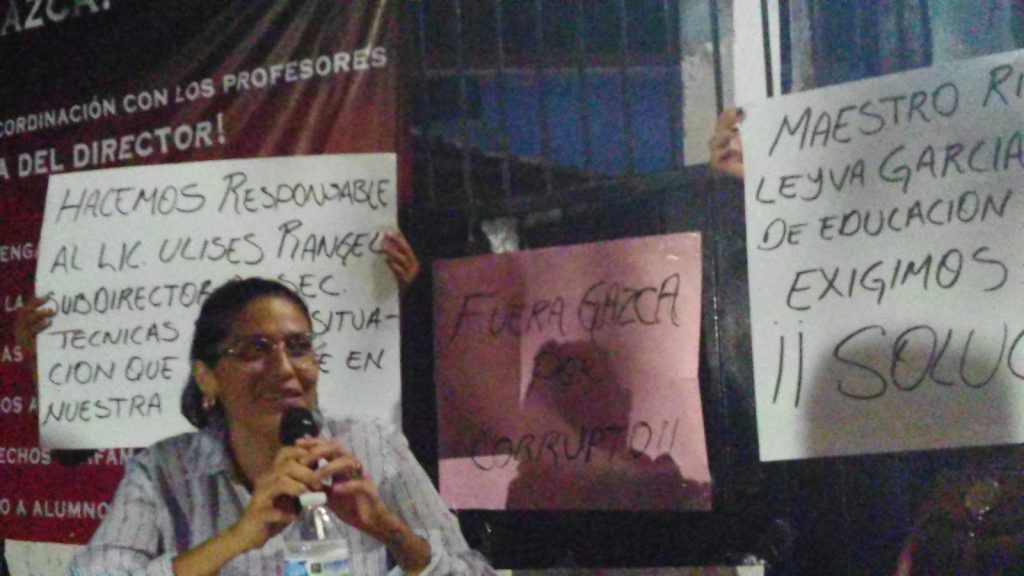 AZCA!
COORDINACIÓN CON LOS PROFESORES
A DEL DIRECTOR!
LA
O A ALUMNO
HACEMOS RESPONSABLE
AL LIC. ULISES RANGEL
SUBDIRECTOR SEC.
TECNICAS SITUA-
CION QUE EN
NUESTRA
FUERA GAZCA
POR
CORRUPTO!!
MAESTRO RI
LEYVA GARCIA
DE EDUCACION
EXIGIMOS
¡¡ SOLUC